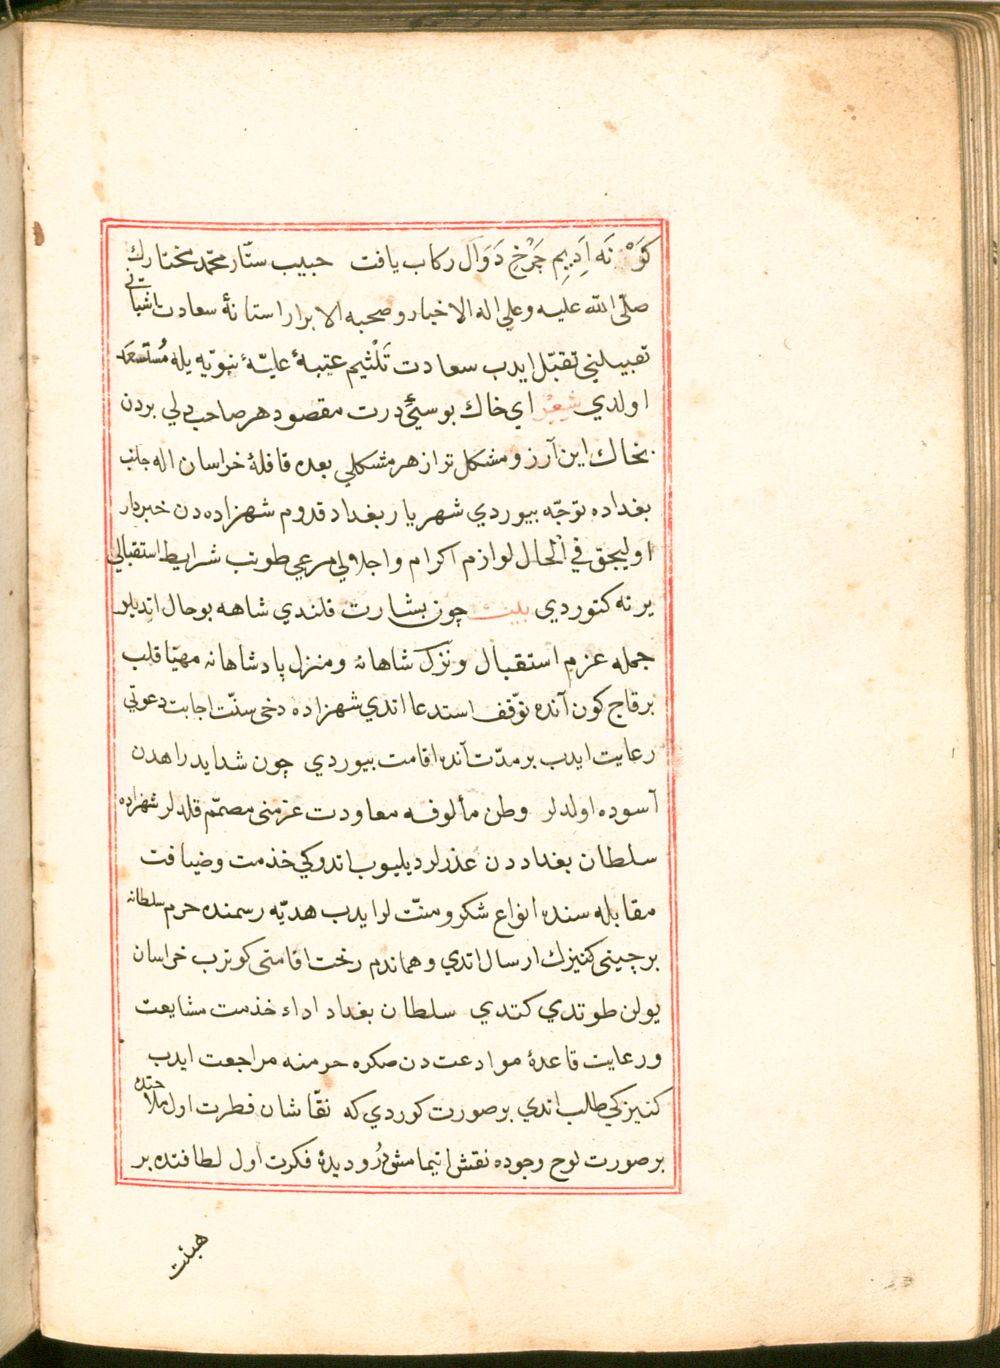 كَوْنَه اَدِيمِ چَرْخِ دَوَال ركاب يافت حبيب ستّار محمّد مختارك
صلّى الله عليه وعلى اله الاخيار وصحبه الابرار استانهٔ سعادت اشيانى
تقبيلنى تقبّل ايدب سعادت تَلْثيم عتبهٔ عليّهٔ نبويّه يله مُستسعد
اولدي شِعْر اي خاك بوسئ درت مقصود هر صاحب دلي بردن
بخاك اين آرزو مشكل تر از هر مشكلي بعده قافلهٔ خراسان اله جانب
بغداده توجّه بيوردي شهريار بغداد قدوم شهزاده دن خبردار
اوليجق في الحال لوازم اكرام واجلالي مرعي طوتب شرايط استقبالي
يرنه كتوردي بيت چون بشارت قلندي شاهه بو حال اتديلر
جمله عزم استقبال ونُزُل شاهانه ومنزل پادشاهانه مهيّا قلب
بر قاج كون آنده توقّف استدعا اتدي شهزاده دخى سنّت اجابت دعوتي
رعايت ايدب بر مدّت آنده اقامت بيوردي چون شدايد راهدن
آسوده اولدلر وطن مألوفه معاودت عزمنى مصمّم قلدلر شهزاده
سلطان بغداددن عذرلر ديليوب اندوكي خذمت وضيافت
مقابله سنده انواع شكر ومنّت لر ايدب هديّه رسمنده حرم سلطانه
بر چينى كنيزك ارسال اتدي وهماندم رخت اقامتى كوترب خراسان
يولن طوتدي كتدي سلطان بغداد اداء خذمت مشايعت
ورعايت قاعدهٔ موادعت دن صكره حرمنه مراجعت ايدب
كنيزكي طلب اتدي بر صورت كوردي كه نقّاشان فطرت اول ملاحتده
بر صورت لوح وجوده نقش اتيمامشلردُر وديدهٔ فكرت اول لطافتده بر
هيئت